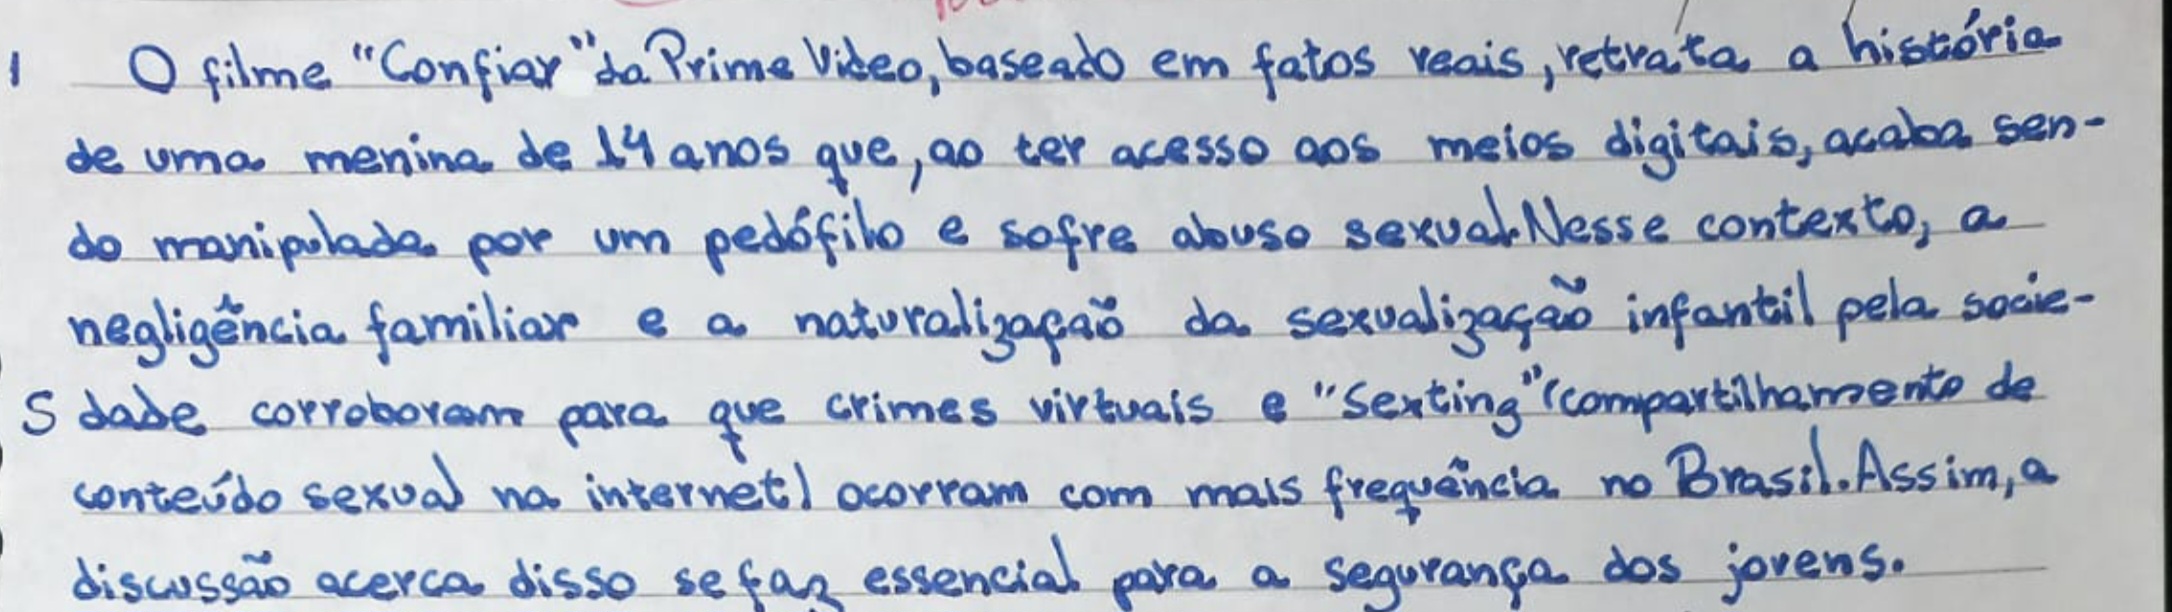 1 O filme "Confiar" da Prime Video, baseado em fatos reais, retrata a história
de uma menina de 14 anos que, ao ter acesso aos meios digitais, acaba sen-
do manipulada por um pedófilo e sofre abuso sexual. Nesse contexto, a
negligência familiar e a naturalização da sexualização infantil pela socie-
5 dade corroboram para que crimes virtuais e "Sexting" (compartilhamento de
conteúdo sexual na internet) ocorram com mais frequência no Brasil. Assim, a
discussão acerca disso se faz essencial para a segurança dos jovens.